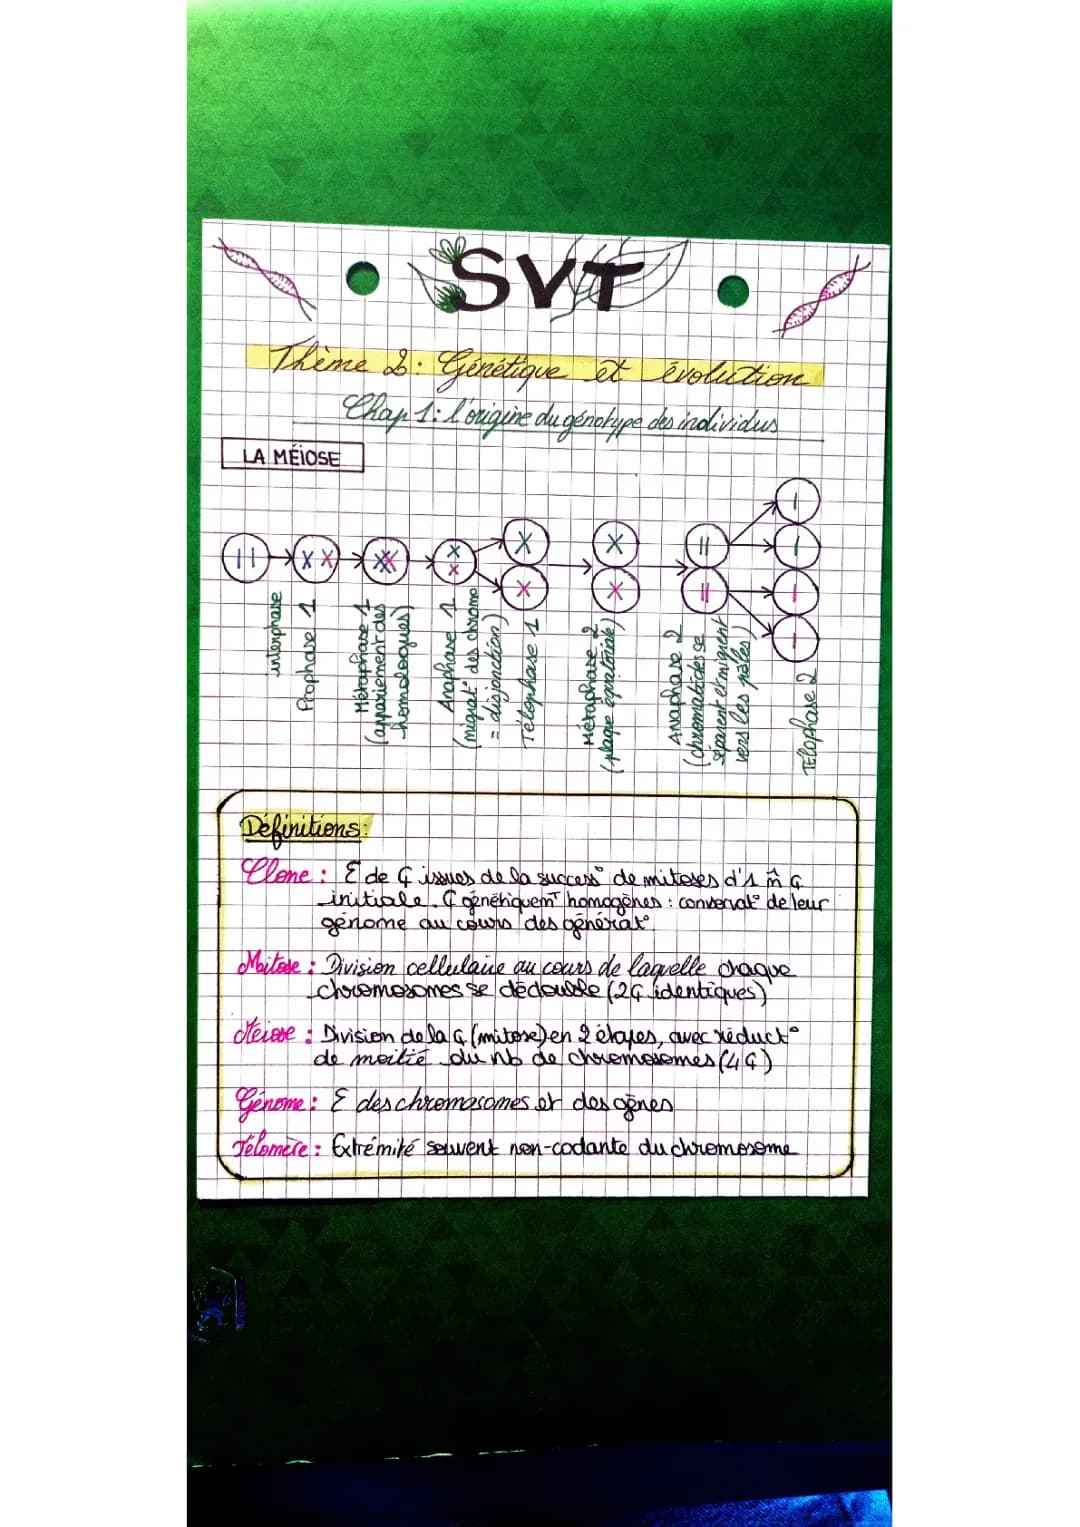 SVT
Thème 2: Génétique et évolution
Chap 1: l'origine du génotype des individus
LA MÉIOSE
interphase
Prophase 1
Métaphase 1
(appariement des
homologues)
Anaphase 1
(migrat° des chromo
= disjonction)
Télophase 1
Métaphase 2
(plaque équatoriale)
Anaphase 2
(chromatides se
séparent et migrent
vers les pôles)
Télophase 2
Définitions:
Clone: E de C issues de la success° de mitoses d'1 m̂ C
initiale. C génétiquemT homogènes : conservat° de leur
génome au cours des générat°
Mitose : Division cellulaire au cours de laquelle chaque
chromosomes se dédouble (2C identiques)
Méiose : Division de la C (mitose) en 2 étapes, avec réduct°
de moitié du nb de chromosomes (4C)
Génome: E des chromosomes et des gènes
Télomère : Extrémité souvent non-codante du chromosome